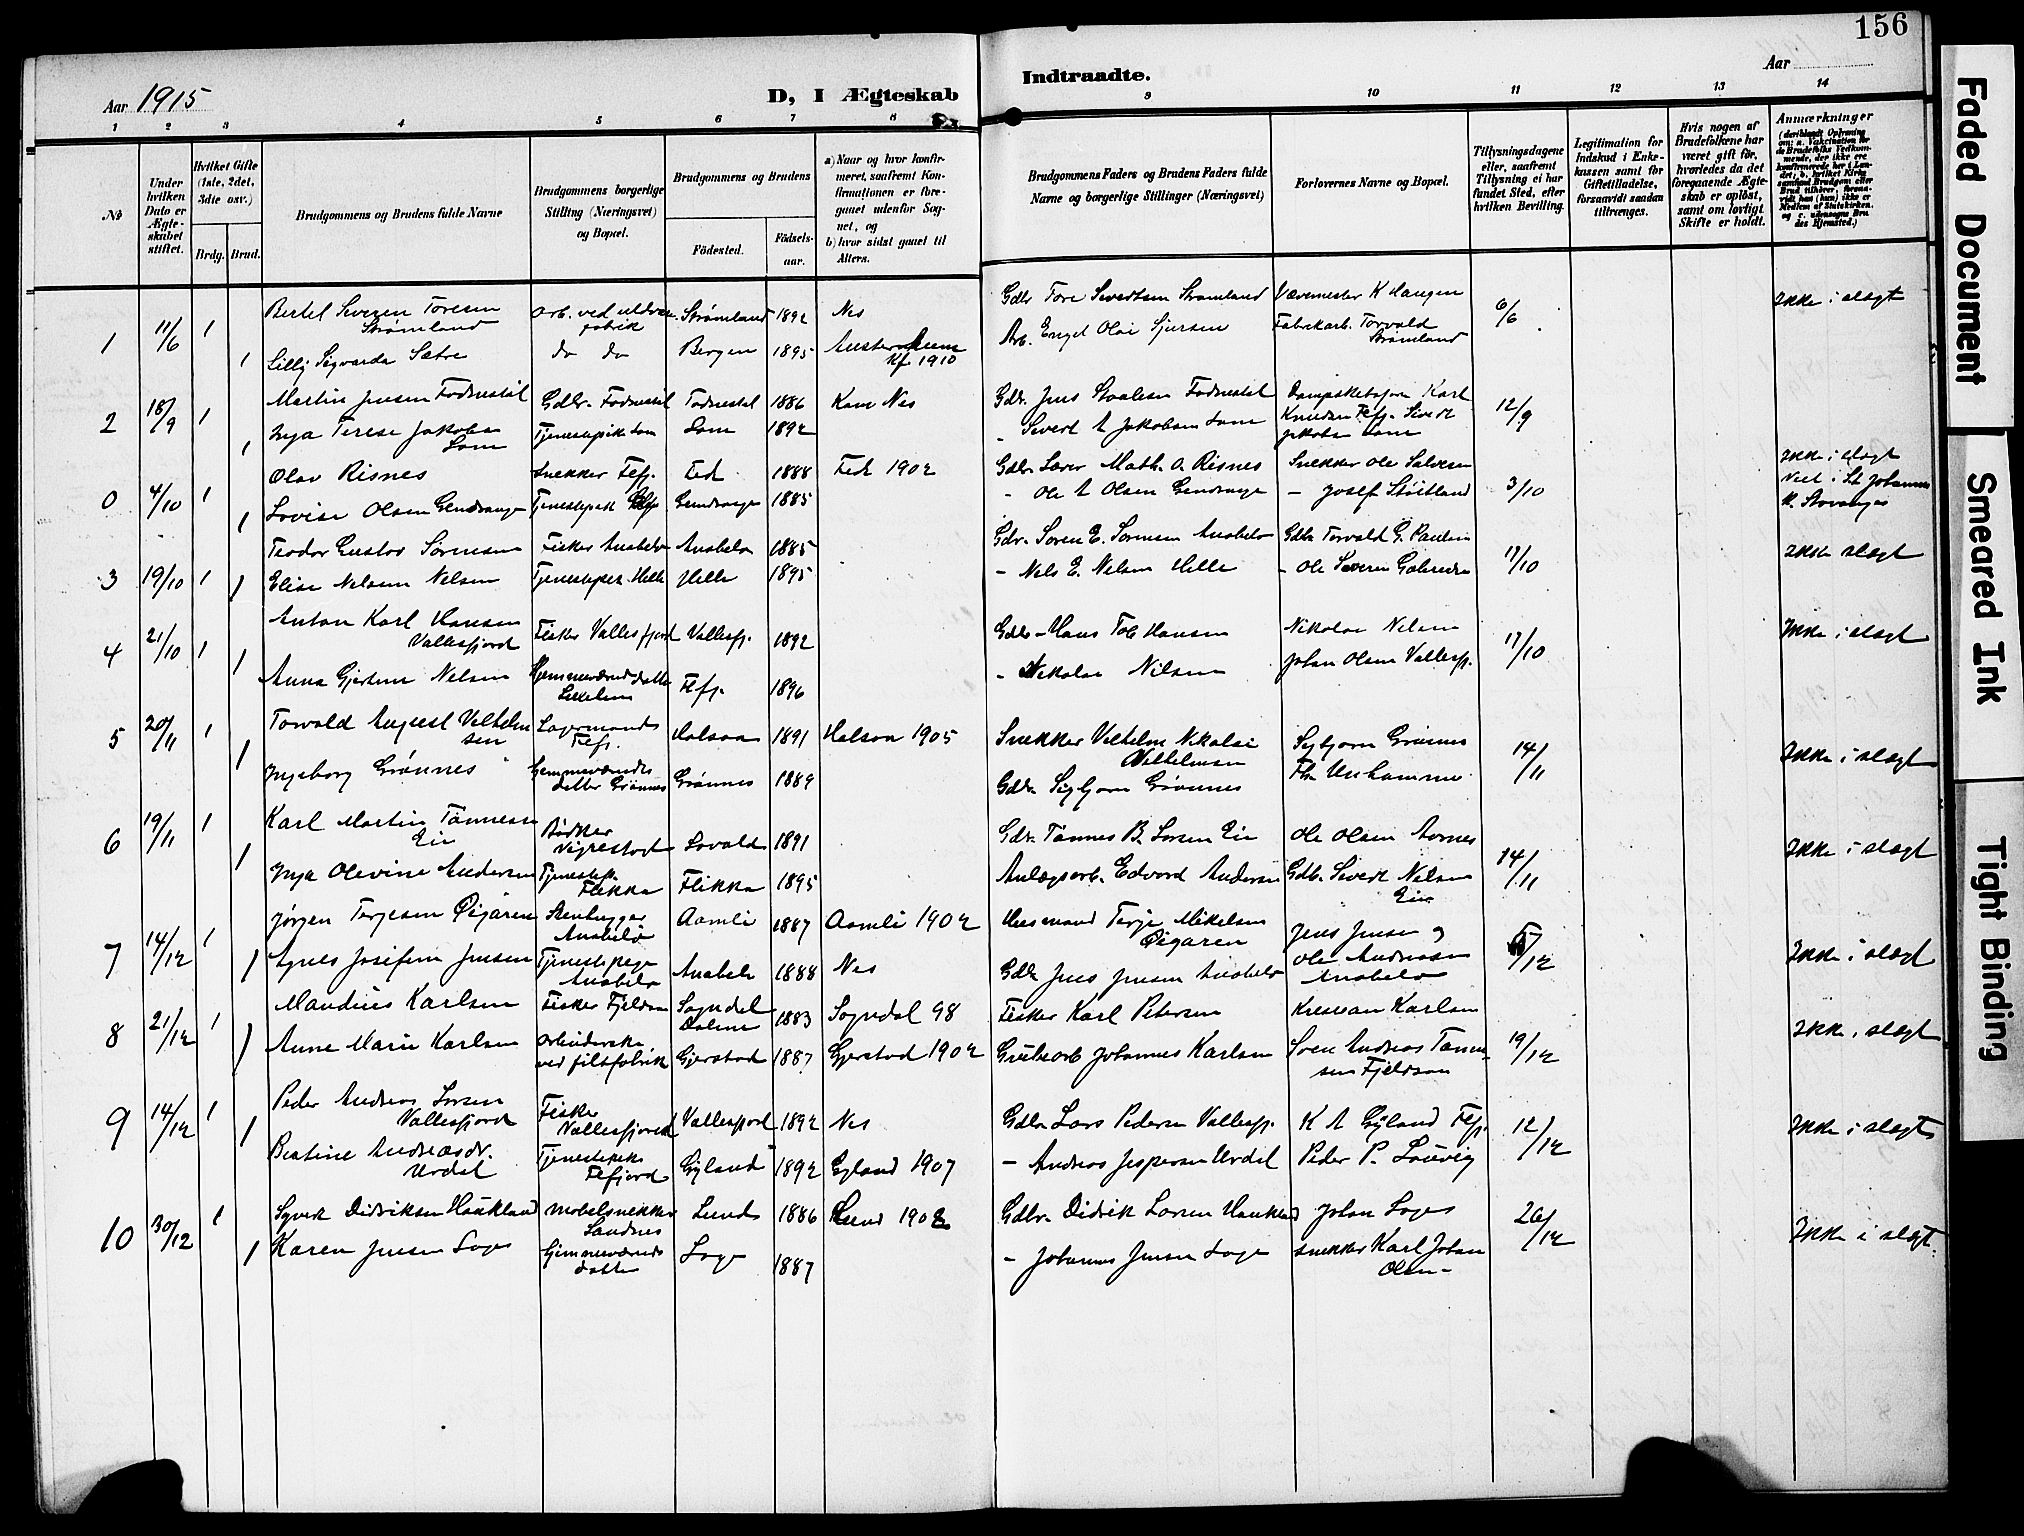 156
Aar 1915
D, I Ægteskab
Indtraadte.
Aar
1 2 3 4 5 6 7 8 9 10 11 12 13 14
No
Under hvilken Dato er Ægteskabet stiftet.
Hvilket Gifte (1ste, 2det, 3die osv.)
Brdg. Brud.
Brudgommens og Brudens fulde Navne
Brudgommens borgerlige Stilling (Næringsvei) og Bopæl.
Brudgommens og Brudens
Födested.
Födsels-aar.
a) Naar og hvor konfirmeret, saafremt Konfirmationen er foregaaet udenfor Sognet, og
b) hvor sidst gaaet til Alters.
Brudgommens Faders og Brudens Faders fulde Navne og borgerlige Stillinger (Næringsvei)
Forlovernes Navne og Bopæl.
Tillysningsdagene eller, saafremt Tillysning ei har fundet Sted, efter hvilken Bevilling.
Legitimation for Indskud i Enkekassen samt for Giftetilladelse, forsaavidt saadan tiltrænges.
Hvis nogen af Brudefolkene har været gift för, hvorledes da det foregaaende Ægteskab er oplöst, samt om lovligt Skifte er holdt.
Anmærkninger
1 11/6 1 Bertel Severin Toresen Strømland Arb. ved uldvarefabrik Strømland 1892 Nes Gdbr Tore Severtsen Strømland Vævemester K Haugen 6/6 Ikke i slægt
1 Lilly Sigvarda Sætre do do Bergen 1895 Kf 1910 Arb. Engel Olai Fabrikarb. Torvald Strømland
2 18/9 1 Martin Jensen Fodnestöl Gdbr. Fodnestöl Fodnestöl 1886 Nes Gdbr. Jens Fodnestöl Karl Knudsen Fefj. Sivert Jakobsen 12/9
1 Inga Terese Jakobsen Lom Tjenestepike Lom Lom 1892 - Sivert A Jakobsen Lom
0 4/10 1 Olav Risnes Snekker Fefj. Fed 1888 Fede 1902 Gdbr Lærer Math. O. Risnes Snekker Ole Salvesen 3/10 Ikke i slægt Viet i St Johannes K. Stavanger
1 Lovise Olsen Gendrange Tjenestepik Gendrange 1885 - Ole A Olsen Gendrange - Josef Støitland
3 19/10 1 Teodor Gustav Sørensen Fisker Anabelø Anabelø 1885 Gdr. Søren E. Sørensen Anabelø Gdbr. Torvald G. Paulsen 17/10 Ikke slægt
1 Elise Nelsine Nelsen Tjenestepik. Helle Helle 1895 - Nels E. Nelsen Helle - Ole Severin
4 21/10 1 Anton Karl Hansen Vallesfjord Fisker Vallesfjord Vallesfj. 1892 Gdbr - Hans Tob Hansen Nikolai Nelsen 17/10 Ikke i slægt
1 Anna Gjertine Nelsen Hjemmeværende datter Fefj. 1896 - Nikolai Nilsen Johan Olsen Vallesfj.
5 20/11 1 Torvald August Vilhelmsen Lagermand Fefj. Halsaa 1891 Halsaa 1905 Snekker Vilhelm Nikolai Wilhelmsen Sigbjørn Grønnes 14/11 Ikke i slægt
1 Ingeborg Grønnes Hjemmeværende datter Grønnes Grønnes 1889 Gdbr. Sigbjørn Grønnes
6 19/11 1 Karl Martin Tønnesen Eie Bødker Vigrestad Lovald 1891 Gdbr. Tønnes B. Larsen Eie Ole Olsen 14/11 Ikke i slægt
1 Inga Olevine Andersen Tjenestep. Flikka Flikka 1895 Anlægsarb. Edvard Andersen Gdb. Sivert Nelsen Eie
7 14/12 1 Jørgen Terjesen Øigaren Stenhugger Anabelø Aamli 1887 Aamli 1902 Husmand Terje Mikelsen Øigaren Jens Jensen og 5/12 Ikke i slægt
1 Agnes Josefine Jensen Tjenestepige Anabelø Anabelø 1888 Nes Gdbr Jens Jensen Anabelø Ole Andreasen Anabelø
8 21/12 1 Mandius Karlsen Fisker Sogndal Dalene 1883 Sogndal 98 Fisker Karl Petersen Karlsen 19/12 Ikke i slægt
1 Anne Marie Karlsen Arbeiderske ved filtfabrik Gjerstad 1887 Gjerstad 1902 Grubearb Johannes Karlsen Sven Andreas Tønnesen
9 14/12 1 Peder Andreas Larsen Vallesfjord Fisker Vallesfjord Vallesfjord 1892 Nes Gdbr Lars Pedersen Vallesfj. K A Gyland Fefj. 12/12 Ikke i slægt
1 Beatine Andreasdr. Urdal Tjenestepike Fefjord Gyland 1892 Gyland 1907 - Andreas Jespersen Urdal Peder P. Louvig
10 30/12 1 Syvert Didriksen Haukland Møbelsnekker Sandnes Lund 1886 Lund 1902 Gdbr. Didrik Larsen Haukland Johan Loge 26/12 Ikke i slægt.
1 Karen Jensen Loge Hjemmeværende datter Loge 1887 - Johannes Jensen Loge Snekker Karl Johan Olsen -
Faded Document
Smeared Ink
Tight Binding